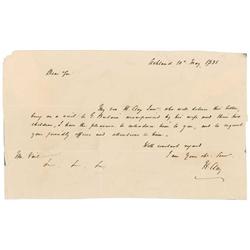 Ashland 10th May 1835
Dear Sir
My son H. Clay Junr. who will deliver this letter,
being on a visit to G. Britain accompanied by his wife and their two
children, I have the pleasure to introduce him to you, and to request
your friendly offices and attentions to him.
With constant regard
I am Your ob. Serv.
H. Clay
Mr. Vail